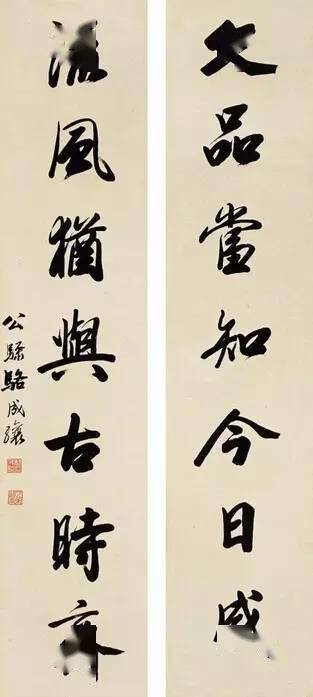 品當知今日成
流風猶與古時
公驌駱成驤